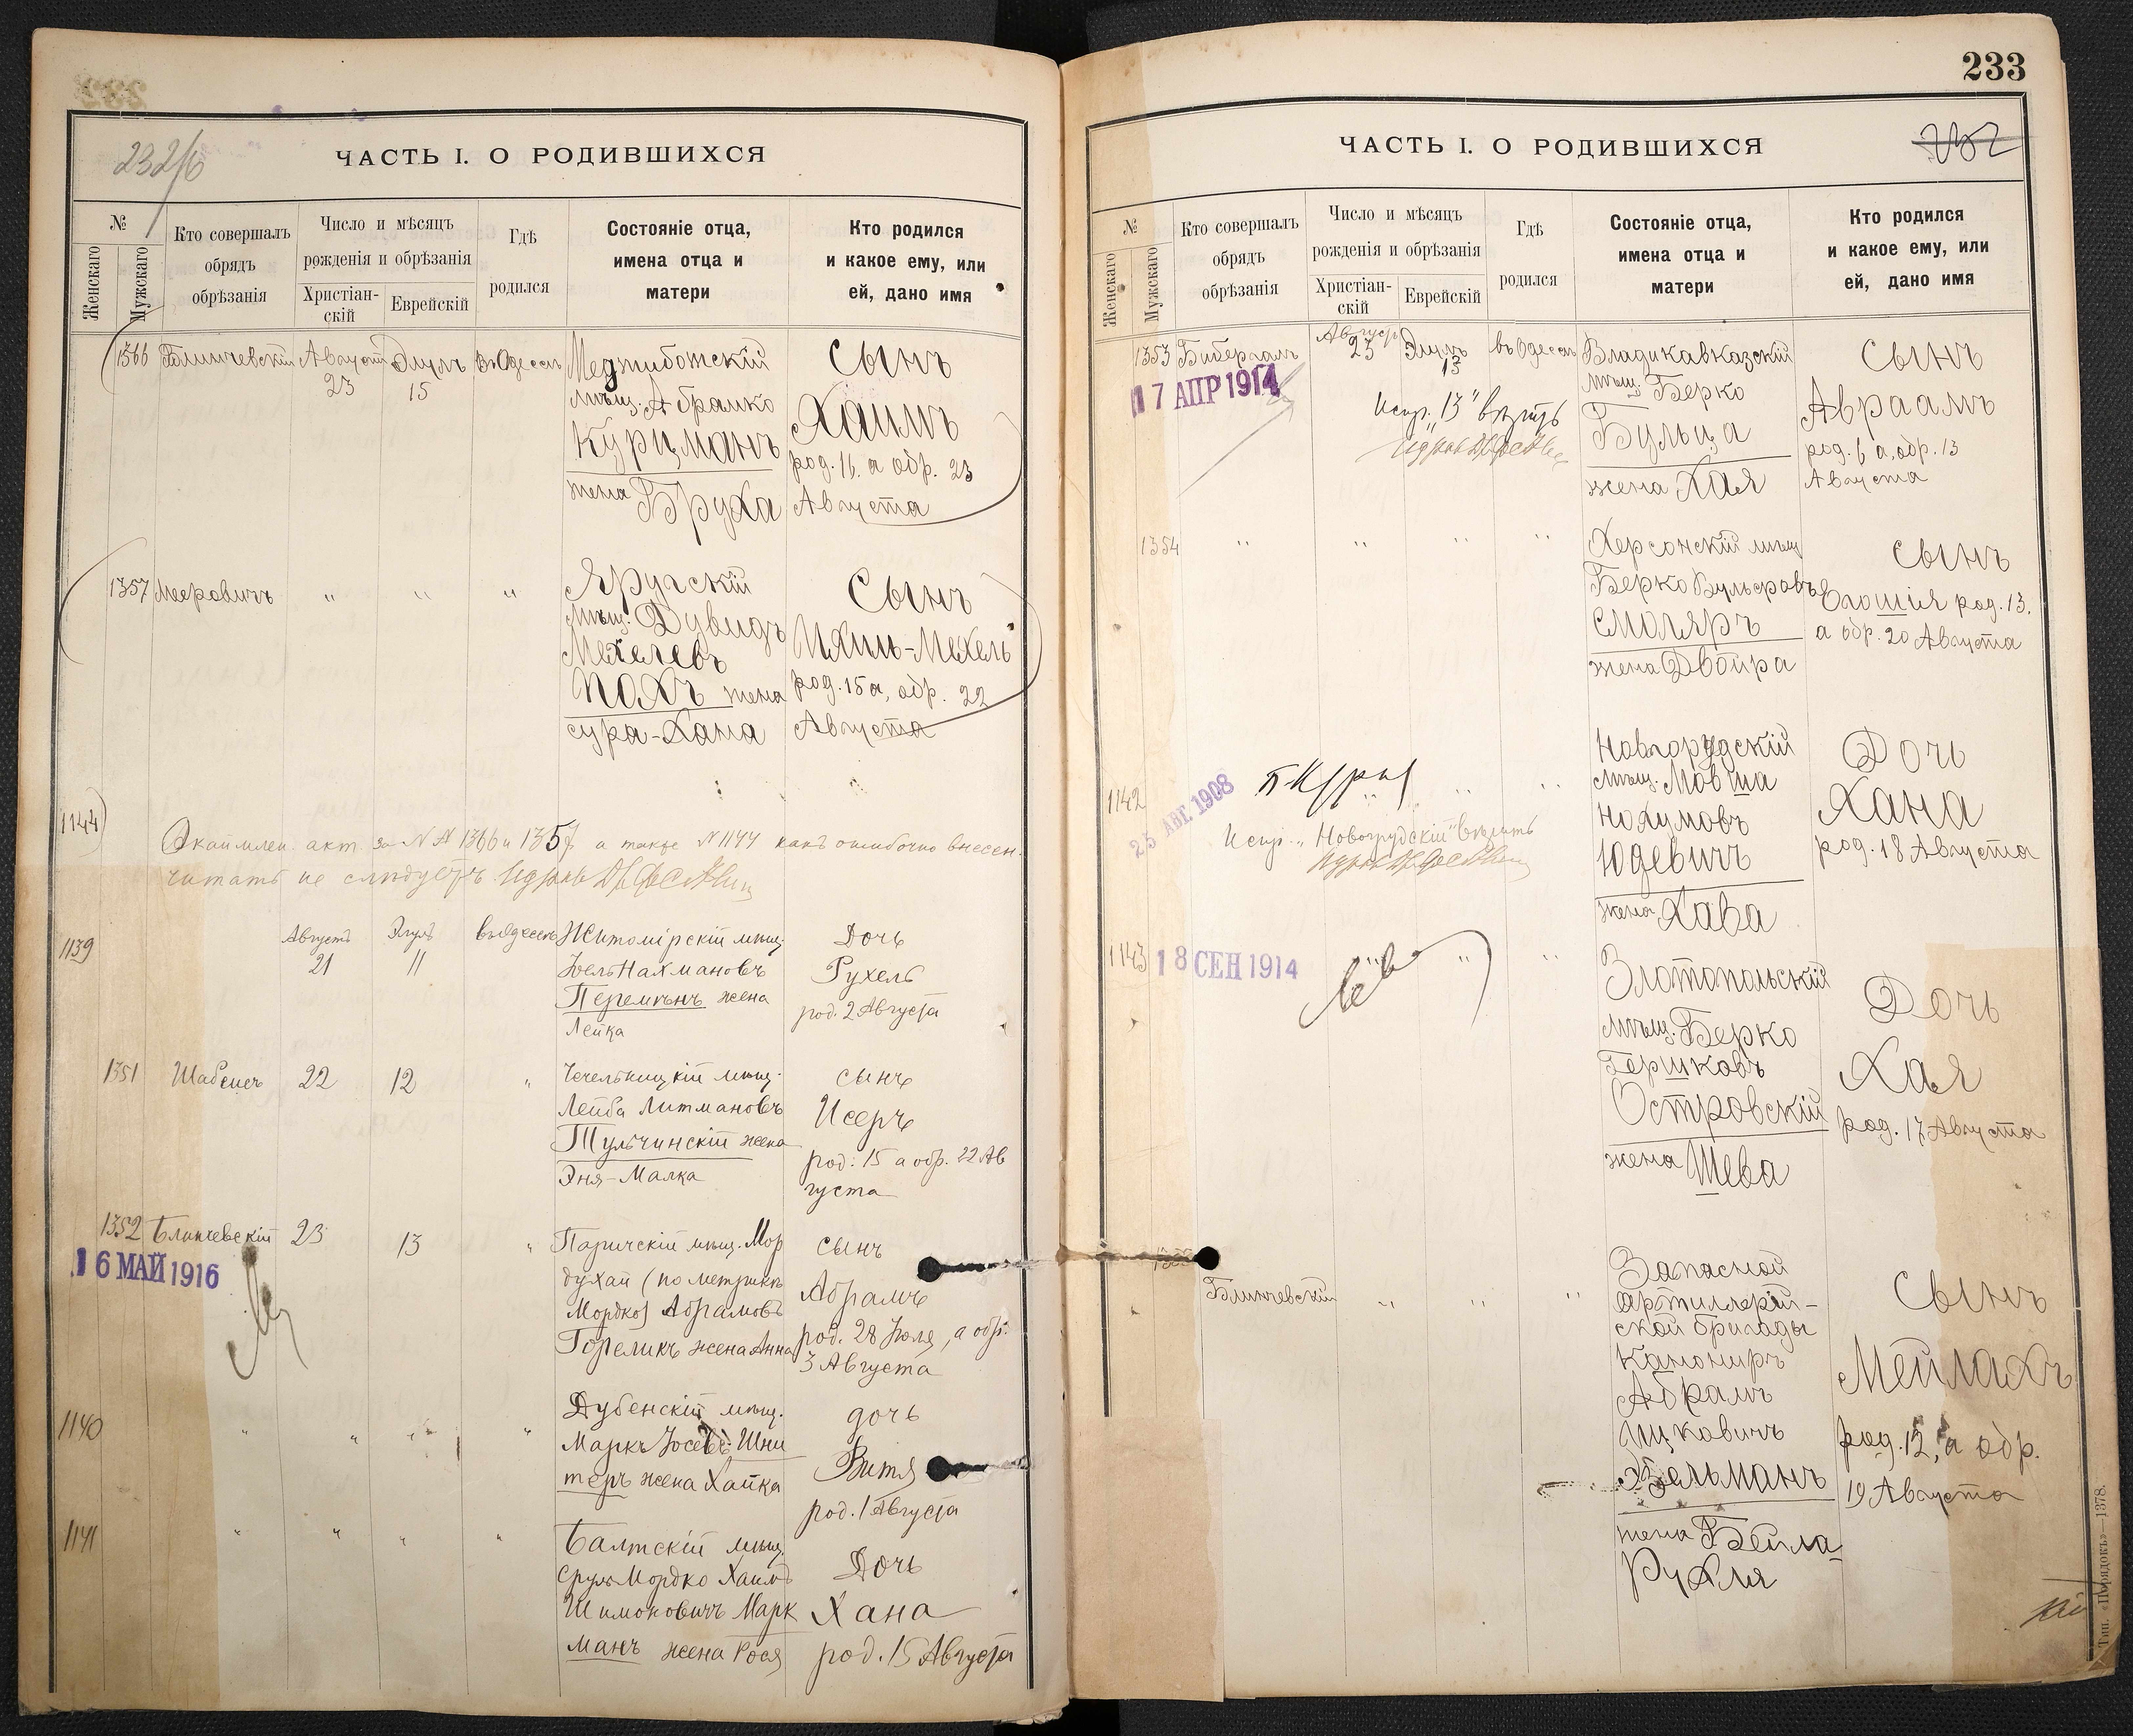 232/б
ЧАСТЬ I. О РОДИВШИХСЯ
№
Женскаго
Мужскаго
Кто совершалъ
обрядъ
обрѣзанія
Число и мѣсяцъ
рожденія и обрѣзанія
Христіан-
скій
Еврейскій
Гдѣ
родился
Состояніе отца,
имена отца и
матери
Кто родился
и какое ему, или
ей, дано имя
1366 Блинчевскій Августъ 23 Элулъ 15 въ Одессѣ
Меджибожскій
мѣщ. Абрамко
Курцманъ
жена Бруха
Сынъ
Хаимъ
род. 16. а обр. 23
Августа
1357 Мееровичъ " " "
Яругскій
мѣщ. Дувидъ
Мехелевъ
Похъ жена
Сура-Хана
Сынъ
Ихил-Мехель
род. 15 а, обр. 22
Августа
1144
Окаймлен. акт. за №№ 1366 и 1357 а также № 1144 какъ ошибочно внесен.
читать не слѣдуетъ.
1139 Августъ 21 Элулъ 11 въ Одессѣ
Житомірскій мѣщ.
Іоель Нахмановъ
Перемѣнъ жена
Лейка
Дочь
Рухель
род. 2 Августа
1351 22 12 "
Чечельницкій мѣщ.
Лейба Литмановъ
Тульчинскій жена
Эня-Малка
сынъ
Исеръ
род: 15 а обр. 22 Ав
густа
1352 Блинчевскій 23 13 "
16 МАЙ 1916
Паричскій мѣщ. Мор
духай (по метрикѣ
Мордко) Абрамовъ
Гореликъ жена Анна
сынъ
Абрамъ
род. 28 Іюля, а обр.
3 Августа
1140 " " " "
Дубенскій мѣщ.
Маркъ Іосевъ Шни
теръ жена Хайка
дочь
Витя
род. 1 Августа
1141 " " " "
Балтскій мѣщ.
Сруль Мордко Хаимъ
Шимоновичъ Марк
манъ жена Рося
Дочь
Хана
род. 15 Августа
233
ЧАСТЬ I. О РОДИВШИХСЯ
232
№
Женскаго
Мужскаго
Кто совершалъ
обрядъ
обрѣзанія
Число и мѣсяцъ
рожденія и обрѣзанія
Христіан-
скій
Еврейскій
Гдѣ
родился
Состояніе отца,
имена отца и
матери
Кто родился
и какое ему, или
ей, дано имя
1353 Бибергалъ Августъ 23 Элулъ 13 въ Одессѣ
17 АПР 1914
Испр. "13" вѣрить
Владикавказскій
мѣщ. Берко
Бульца
жена Хая
Сынъ
Авраамъ
род. 6 а, обр. 13
Августа
1354 " " " "
Херсонскій мѣщ.
Берко Вульфовъ
Смоляръ
жена Двойра
Сынъ
Егошія род. 13.
а обр. 20 Августа
1142
25 АВГ. 1908
Испр. "Новогрудскій" вѣрить
Новгорудскій
мѣщ. Мовша
Нохумовъ
Юдевичъ
жена Хава
Дочь
Хана
род. 18 Августа
1143
18 СЕН 1914
Златопольскій
мѣщ. Берко
Гершковъ
Островскій
жена Шева
Дочь
Хая
род. 17 Августа
Блинчевскій " " "
Запасной
артиллерій-
ской бригады
канониръ
Абрамъ
Ицковичъ
Зельманъ
жена Бейла-
Рухля
Сынъ
Мейлахъ
род. 12, а обр.
19 Августа
Тип. «Порядокъ»—1378.